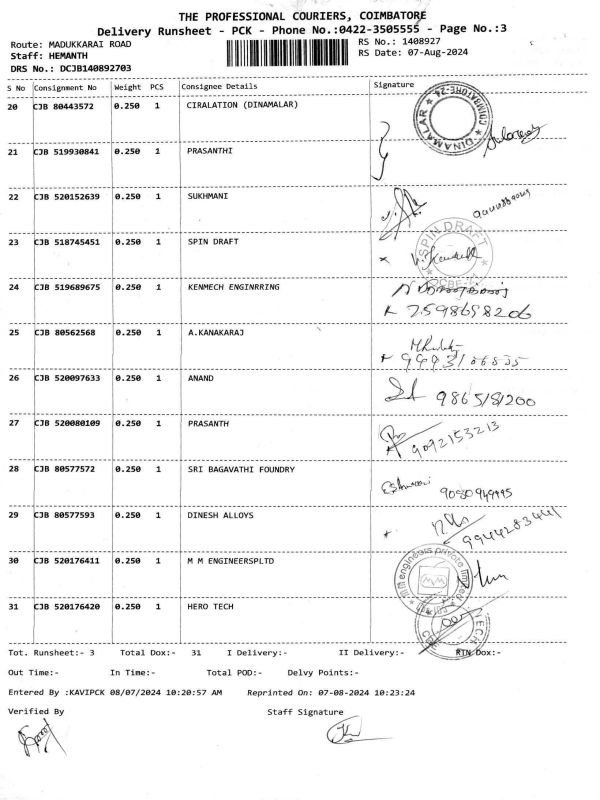 THE PROFESSIONAL COURIERS, COIMBATORE
Delivery Runsheet - PCK - Phone No.:0422-3505555 - Page No.:3
Route: MADUKKARAI ROAD RS No.: 1408927
Staff: HEMANTH RS Date: 07-Aug-2024
DRS No.: DCJB140892703
S No Consignment No Weight PCS Consignee Details Signature
20 CJB 80443572 0.250 1 CIRALATION (DINAMALAR)
DINAMALAR COIMBATORE-24
21 CJB 519930841 0.250 1 PRASANTHI
22 CJB 520152639 0.250 1 SUKHMANI
23 CJB 518745451 0.250 1 SPIN DRAFT
SPIN DRAFT
24 CJB 519689675 0.250 1 KENMECH ENGINRRING
7598698206
25 CJB 80562568 0.250 1 A.KANAKARAJ
26 CJB 520097633 0.250 1 ANAND
9865181200
27 CJB 520080109 0.250 1 PRASANTH
9092153213
28 CJB 80577572 0.250 1 SRI BAGAVATHI FOUNDRY
29 CJB 80577593 0.250 1 DINESH ALLOYS
9944283441
30 CJB 520176411 0.250 1 M M ENGINEERSPLTD
engineers private limited
31 CJB 520176420 0.250 1 HERO TECH
Tot. Runsheet:- 3 Total Dox:- 31 I Delivery:- II Delivery:- RTN Dox:-
Out Time:- In Time:- Total POD:- Delvy Points:-
Entered By :KAVIPCK 08/07/2024 10:20:57 AM Reprinted On: 07-08-2024 10:23:24
Verified By Staff Signature